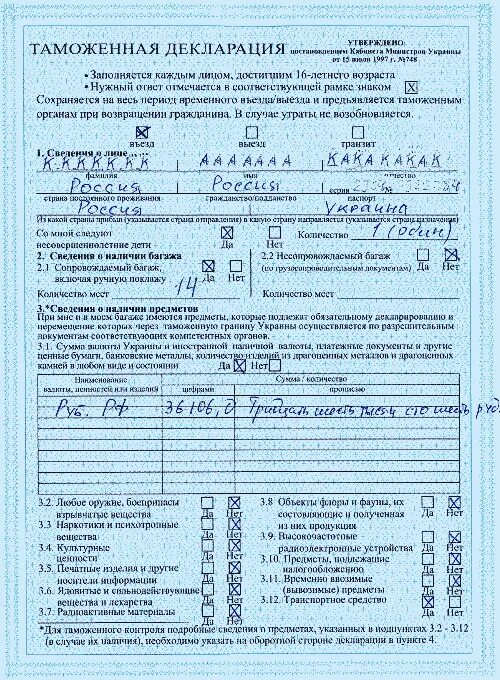 ТАМОЖЕННАЯ ДЕКЛАРАЦИЯ
УТВЕРЖДЕНО:
постановлением Кабинета Министров Украины
от 15 июля 1997 г. №748
• Заполняется каждым лицом, достигшим 16-летнего возраста
• Нужный ответ отмечается в соответствующей рамке знаком X
Сохраняется на весь период временного въезда/выезда и предъявляется таможенным
органам при возвращении гражданина. В случае утраты не возобновляется.
въезд выезд транзит
1. Сведения о лице
К К К К К К К А А А А А А А КАКАКАКАК
фамилия имя отчество
Россия Россия
серия №
страна постоянного проживания гражданство/подданство паспорт
Россия Украина
Из какой страны прибыл (указывается страна отправления) в какую страну направляется (указывается страна назначения)
Со мной следуют
несовершеннолетние дети Да Нет Количество 1 (один)
2. Сведения о наличии багажа
2.1 Сопровождаемый багаж,
включая ручную поклажу Да Нет
Количество мест 14
2.2 Несопровождаемый багаж
(по грузосопроводительным документам) Да Нет
Количество мест
3.*Сведения о наличии предметов
При мне и в моем багаже имеются предметы, которые подлежат обязательному декларированию и
перемещение которых через таможенную границу Украины осуществляется по разрешительным
документам соответствующих компетентных органов.
3.1. Сумма валюты Украины и иностранной наличной валюты, платежные документы и другие
ценные бумаги, банковские металлы, количество изделий из драгоценных металлов и драгоценных
камней в любом виде и состоянии Да Нет
Наименование
валюты, ценностей или изделий
Сумма / количество
цифрами прописью
Руб. РФ 36106,0 Тридцать шесть тысяч сто шесть руб
3.2. Любое оружие, боеприпасы
взрывчатые вещества Да Нет
3.3 Наркотики и психотропные
вещества Да Нет
3.4. Культурные
ценности Да Нет
3.5. Печатные издания и другие
носители информации Да Нет
3.6. Ядовитые и сильнодействующие
вещества и лекарства Да Нет
3.7. Радиоактивные материалы Да Нет
3.8 Объекты флоры и фауны, их
составляющие и полученная
из них продукция Да Нет
3.9. Высокочастотные
радиоэлектронные устройства Да Нет
3.10. Предметы, подлежащие
налогообложению Да Нет
3.11. Временно ввозимые
(вывозимые) предметы Да Нет
3.12. Транспортное средство Да Нет
*Для таможенного контроля подробные сведения о предметах, указанных в подпунктах 3.2 - 3.12
(в случае их наличия), необходимо указать на оборотной стороне декларации в пункте 4.